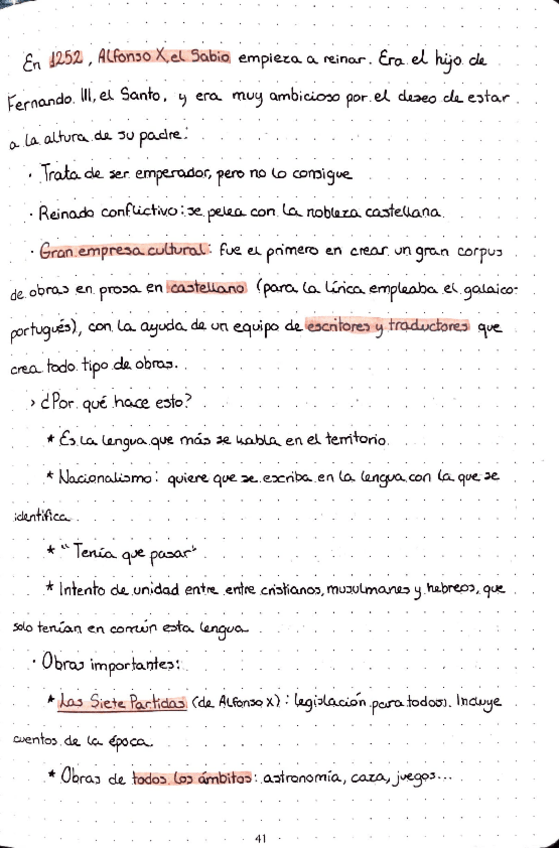 En 1252, Alfonso X, el Sabio empieza a reinar. Era el hijo de
Fernando III, el Santo, y era muy ambicioso por el deseo de estar
a la altura de su padre:
· Trata de ser emperador, pero no lo consigue
· Reinado conflictivo: se pelea con la nobleza castellana.
· Gran empresa cultural: fue el primero en crear un gran corpus
de obras en prosa en castellano (para la lírica empleaba el galaico-
portugués), con la ayuda de un equipo de escritores y traductores que
crea todo tipo de obras.
> ¿Por qué hace esto?
* Es la lengua que más se habla en el territorio.
* Nacionalismo: quiere que se escriba en la lengua con la que se
identifica.
* "Tenía que pasar"
* Intento de unidad entre entre cristianos, musulmanes y hebreos, que
solo tenían en común esta lengua.
· Obras importantes:
* Las Siete Partidas (de Alfonso X): legislación para todos. Incluye
cuentos de la época.
* Obras de todos los ámbitos: astronomía, caza, juegos...
41